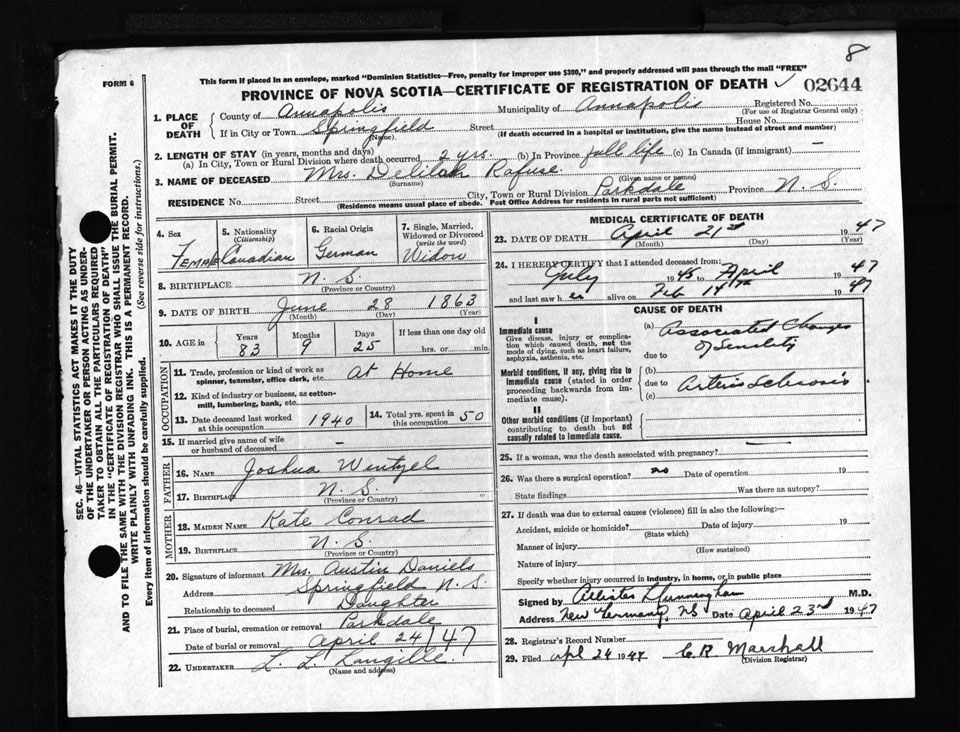 8
FORM 6
This form if placed in an envelope, marked "Dominion Statistics—Free, penalty for improper use $300," and properly addressed will pass through the mail "FREE"
PROVINCE OF NOVA SCOTIA—CERTIFICATE OF REGISTRATION OF DEATH ✓ 02644
SEC. 46—VITAL STATISTICS ACT MAKES IT THE DUTY
OF THE UNDERTAKER OR PERSON ACTING AS UNDER-
TAKER TO OBTAIN ALL THE PARTICULARS REQUIRED
IN THE "CERTIFICATE OF REGISTRATION OF DEATH"
AND TO FILE THE SAME WITH THE DIVISION REGISTRAR WHO SHALL ISSUE THE BURIAL PERMIT.
WRITE PLAINLY WITH UNFADING INK. THIS IS A PERMANENT RECORD.
Every item of information should be carefully supplied. (See reverse side for instructions.)
1. PLACE OF DEATH
County of Annapolis Municipality of Annapolis Registered No.
(For use of Registrar General only)
If in City or Town Springfield Street House No.
(Name) (If death occurred in a hospital or institution, give the name instead of street and number)
2. LENGTH OF STAY (in years, months and days)
(a) In City, Town or Rural Division where death occurred 2 yrs. (b) In Province full life (c) In Canada (if immigrant) —
3. NAME OF DECEASED Mrs. Delilah Rafuse
(Surname) (Given name or names)
RESIDENCE No. Street City, Town or Rural Division Parkdale Province N.S.
(Residence means usual place of abode. Post Office Address for residents in rural parts not sufficient)
4. Sex Female
5. Nationality (Citizenship) Canadian
6. Racial Origin German
7. Single, Married, Widowed or Divorced (write the word) Widow
8. BIRTHPLACE N.S.
(Province or Country)
9. DATE OF BIRTH June 28 1863
(Month) (Day) (Year)
10. AGE in Years 83 Months 9 Days 25 If less than one day old hrs. or min.
OCCUPATION
11. Trade, profession or kind of work as spinner, teamster, office clerk, etc. At Home
12. Kind of industry or business, as cotton-mill, lumbering, bank, etc.
13. Date deceased last worked at this occupation 1940
14. Total yrs. spent in this occupation 50
15. If married give name of wife or husband of deceased —
FATHER
16. NAME Joshua Wentzel
17. BIRTHPLACE N.S.
(Province or Country)
MOTHER
18. MAIDEN NAME Kate Conrad
19. BIRTHPLACE N.S.
(Province or Country)
20. Signature of informant Mrs. Austin Daniels
Address Springfield N.S.
Relationship to deceased Daughter
21. Place of burial, cremation or removal Parkdale
Date of burial or removal April 24/47
22. UNDERTAKER L. L. Langille
(Name and address)
MEDICAL CERTIFICATE OF DEATH
23. DATE OF DEATH April 21st 1947
(Month) (Day) (Year)
24. I HEREBY CERTIFY that I attended deceased from:
July 1945 to April 1947
and last saw her alive on Feb 14th 1947
CAUSE OF DEATH
I
Immediate cause
Give disease, injury or complication which caused death, not the mode of dying, such as heart failure, asphyxia, asthenia, etc.
(a) Associated Changes
due to of Senility
Morbid conditions, if any, giving rise to immediate cause (stated in order proceeding backwards from immediate cause).
(b)
due to Arterio Sclerosis
(c)
II
Other morbid conditions (if important) contributing to death but not causally related to immediate cause.
25. If a woman, was the death associated with pregnancy? —
26. Was there a surgical operation? no Date of operation 19
State findings Was there an autopsy?
27. If death was due to external causes (violence) fill in also the following:—
Accident, suicide or homicide? Date of injury 19
(State which)
Manner of injury
(How sustained)
Nature of injury
Specify whether injury occurred in industry, in home, or in public place
Signed by M.D.
Address New Germany, NS Date April 23rd 1947
28. Registrar's Record Number
29. Filed Apl 24 1947 C R Marshall
(Division Registrar)